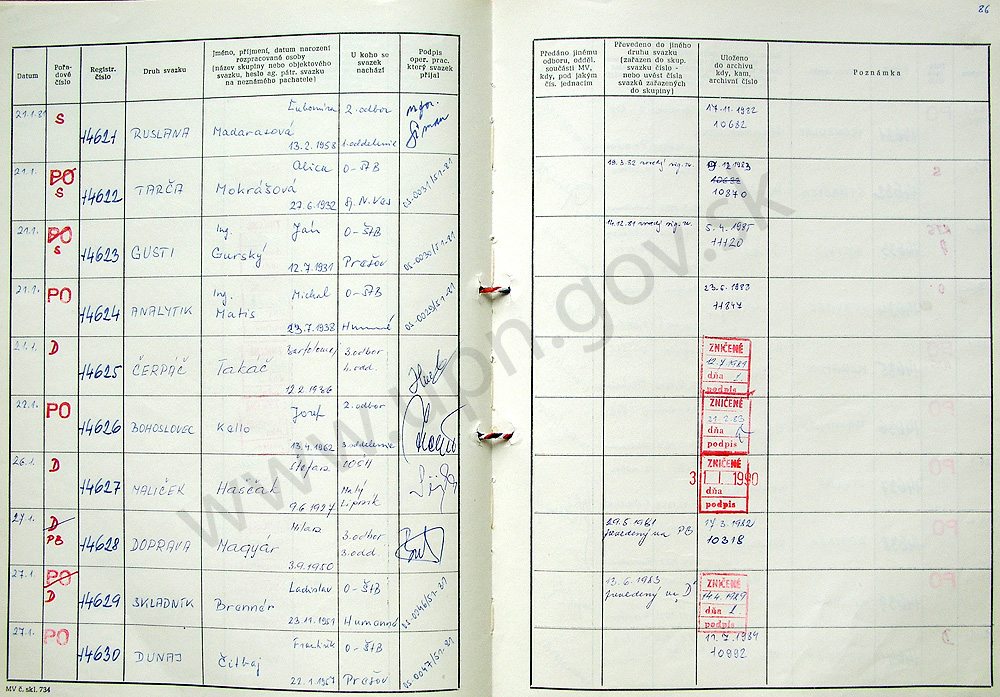 86
Datum
Pořadové číslo
Registr. číslo
Druh svazku
Jméno, příjmení, datum narození
rozpracované osoby
(název skupiny nebo objektového
svazku, heslo ag. pátr. svazku
na neznámého pachatele)
U koho se
svazek
nachází
Podpis
oper. prac.
který svazek
přijal
Předáno jinému
odboru, odděl.
součásti MV,
kdy, pod jakým
čís. jednacím
Převedeno do jiného
druhu svazku
(zařazen do skup.
svazku číslo -
nebo uvést čísla
svazků zařazených
do skupiny)
Uloženo
do archivu
kdy, kam,
archivní číslo
Poznámka
21.1.81 S 14621 RUSLANA Ľubomíra Madarasová 13.2.1958 2. odbor 1. oddelenie
17.11.1982
10682
21.1. PO S 14622 TARČA Alica Mokrášová 27.6.1932 O-ŠtB OS-0031/51-81
1983
10870
21.1. PO S 14623 GUSTI Ing. Ján Gurský 12.7.1931 O-ŠtB Prešov OS-0030/51-81
5.4.1985
11120
21.1. PO 14624 ANALYTIK Ing. Michal Matis 23.7.1938 O-ŠtB Humenné OS-0029/51-81
23.6.1983
11847
21.1. D 14625 ČERPÁČ Bartolomej Takáč 12.2.1936 3. odbor
ZNIČENÉ
dňa
podpis
22.1. PO 14626 BOHOSLOVEC Jozef Kello 13.4.1962 2. odbor 3. oddelenie
ZNIČENÉ
dňa
podpis
26.1. D 14627 MALIČEK Štefan Hasčák 9.6.1927
ZNIČENÉ
31 1 1990
dňa
podpis
27.1. D PB 14628 DOPRAVA Milan Magyár 3.9.1950 3. odbor 3. odd.
29.5.1981
prevedený na PB
17.3.1982
10318
27.1. PO D 14629 SKLADNÍK Ladislav Brenner 23.11.1951 O-ŠtB Humenné OS-0046/51-81
13.6.1983
prevedený na "D"
ZNIČENÉ
14.4.1989
dňa
podpis
27.1. PO 14630 DUNAJ František Čitbaj 22.1.1957 O-ŠtB Prešov OS-0047/51-81
11.7.1984
10992
MV č. skl. 734
www.upn.gov.sk